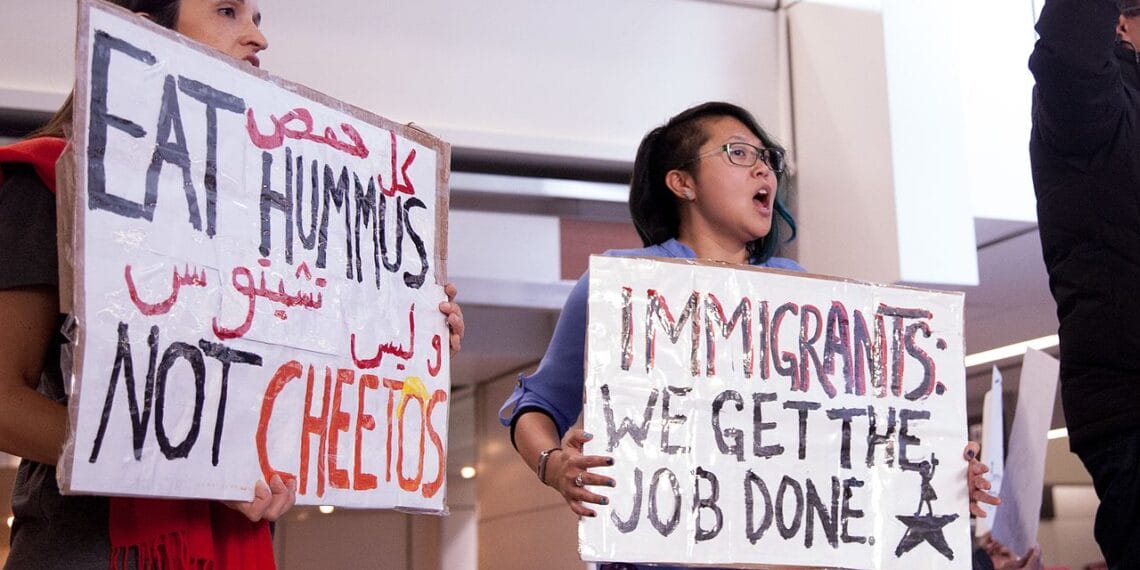 كل حمص
EAT HUMMUS
وليس تشيتوس
NOT CHEETOS
IMMIGRANTS:
WE GET THE
JOB DONE.